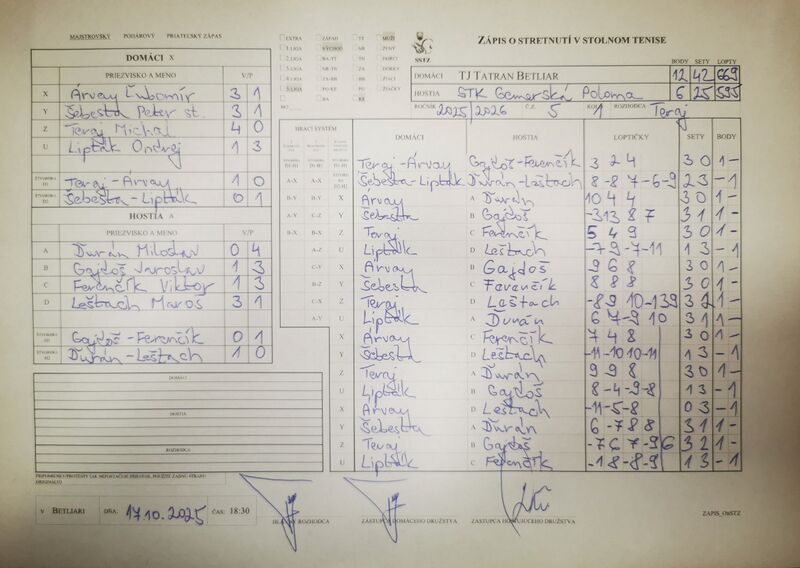 MAJSTROVSKÝ POHÁROVÝ PRIATEĽSKÝ ZÁPAS
DOMÁCI X
PRIEZVISKO A MENO V/P
X Árvay Ľubomír 3 1
Y Šebesta Peter st. 3 1
Z Teraj Michal 4 0
U Lipták Ondrej 1 3
ŠTVORHRA D1 Teraj-Árvay 1 0
ŠTVORHRA D2 Šebesta-Lipták 0 1
HOSTIA A
PRIEZVISKO A MENO V/P
A Ďurán Miloslav 0 4
B Gajdoš Jaroslav 1 3
C Ferenčík Viktor 1 3
D Leštach Maroš 3 1
ŠTVORHRA H1 Gajdoš-Ferenčík 0 1
ŠTVORHRA H2 Ďurán-Leštach 1 0
DOMÁCI
HOSTIA
ROZHODCA
V BETLIARI DŇA: 17.10.2025 ČAS: 18:30
EXTRA ZÁPAD TT MUŽI
1.LIGA VÝCHOD NR ŽENY
2.LIGA BA-VT TN DORCI
3.LIGA TN ZA DORKY
4.LIGA ZA-BB BB ŽIACI
5.LIGA PO-KE PO ŽIAČKY
BA KE
SSTZ
ZÁPIS O STRETNUTÍ V STOLNOM TENISE
BODY SETY LOPTY
DOMÁCI TJ TATRAN BETLIAR 12 42 669
HOSTIA STK Gemerská Poloma 6 25 595
ROČNÍK 2025/2026 Č.Z. 5 KOLO 1 ROZHODCA Teraj
HRACÍ SYSTÉM DOMÁCI HOSTIA LOPTIČKY SETY BODY
Teraj-Árvay Gajdoš-Ferenčík 3 2 4 3 0 1 -
A-X A-X Šebesta-Lipták Ďurán-Leštach 8 -8 7 -6 -9 2 3 - 1
B-Y B-Y X Árvay A Ďurán 10 4 4 3 0 1 -
A-Y C-Z Y Šebesta B Gajdoš -3 13 8 7 3 1 1 -
B-X B-X Z Teraj C Ferenčík 5 4 9 3 0 1 -
A-Z U Lipták D Leštach -7 9 -7 -11 1 3 - 1
C-Y X Árvay B Gajdoš 9 6 8 3 0 1 -
B-Z Y Šebesta C Ferenčík 8 8 8 3 0 1 -
C-X Z Teraj D Leštach -8 9 10 -13 9 3 2 1 -
A-Y U Lipták A Ďurán 6 7 -9 10 3 1 1 -
X Árvay C Ferenčík 7 4 8 3 0 1 -
Y Šebesta D Leštach -11 -10 10 -11 1 3 - 1
Z Teraj A Ďurán 9 9 8 3 0 1 -
U Lipták B Gajdoš 8 -4 -9 -8 1 3 - 1
X Árvay D Leštach -11 -5 -8 0 3 - 1
Y Šebesta A Ďurán 6 -7 8 8 3 1 1 -
Z Teraj B Gajdoš -7 6 7 -9 6 3 2 1 -
U Lipták C Ferenčík -1 8 -8 -9 1 3 - 1
HLAVNÝ ROZHODCA ZÁSTUPCA DOMÁCEHO DRUŽSTVA ZÁSTUPCA HOSŤUJÚCEHO DRUŽSTVA ZÁPIS_OnSTZ